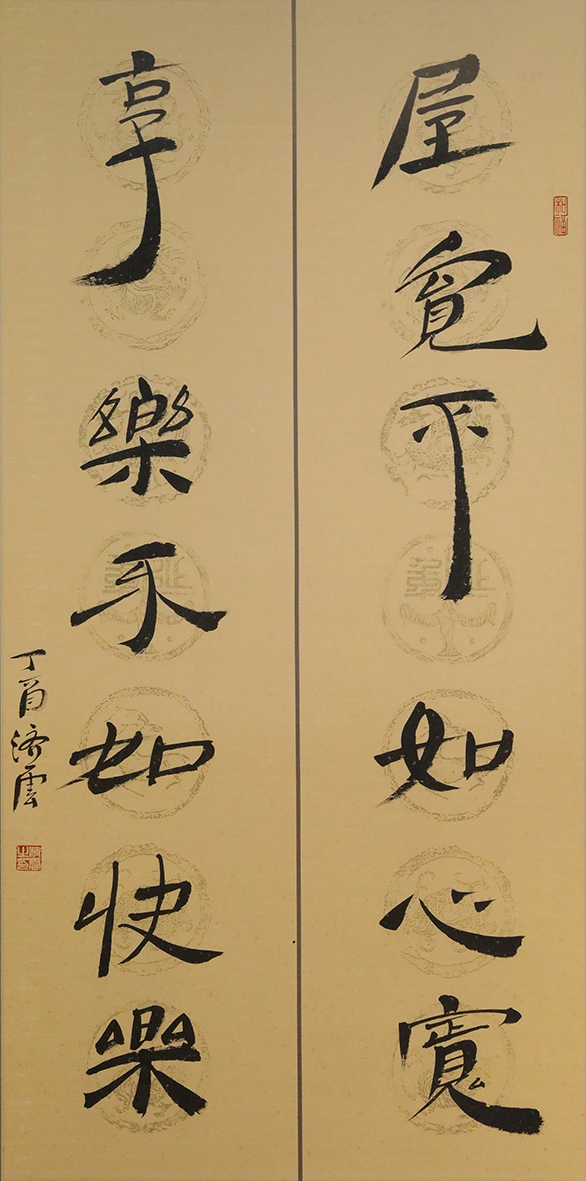 屋寬不如心寬
享樂不如快樂
丁酉濟雲